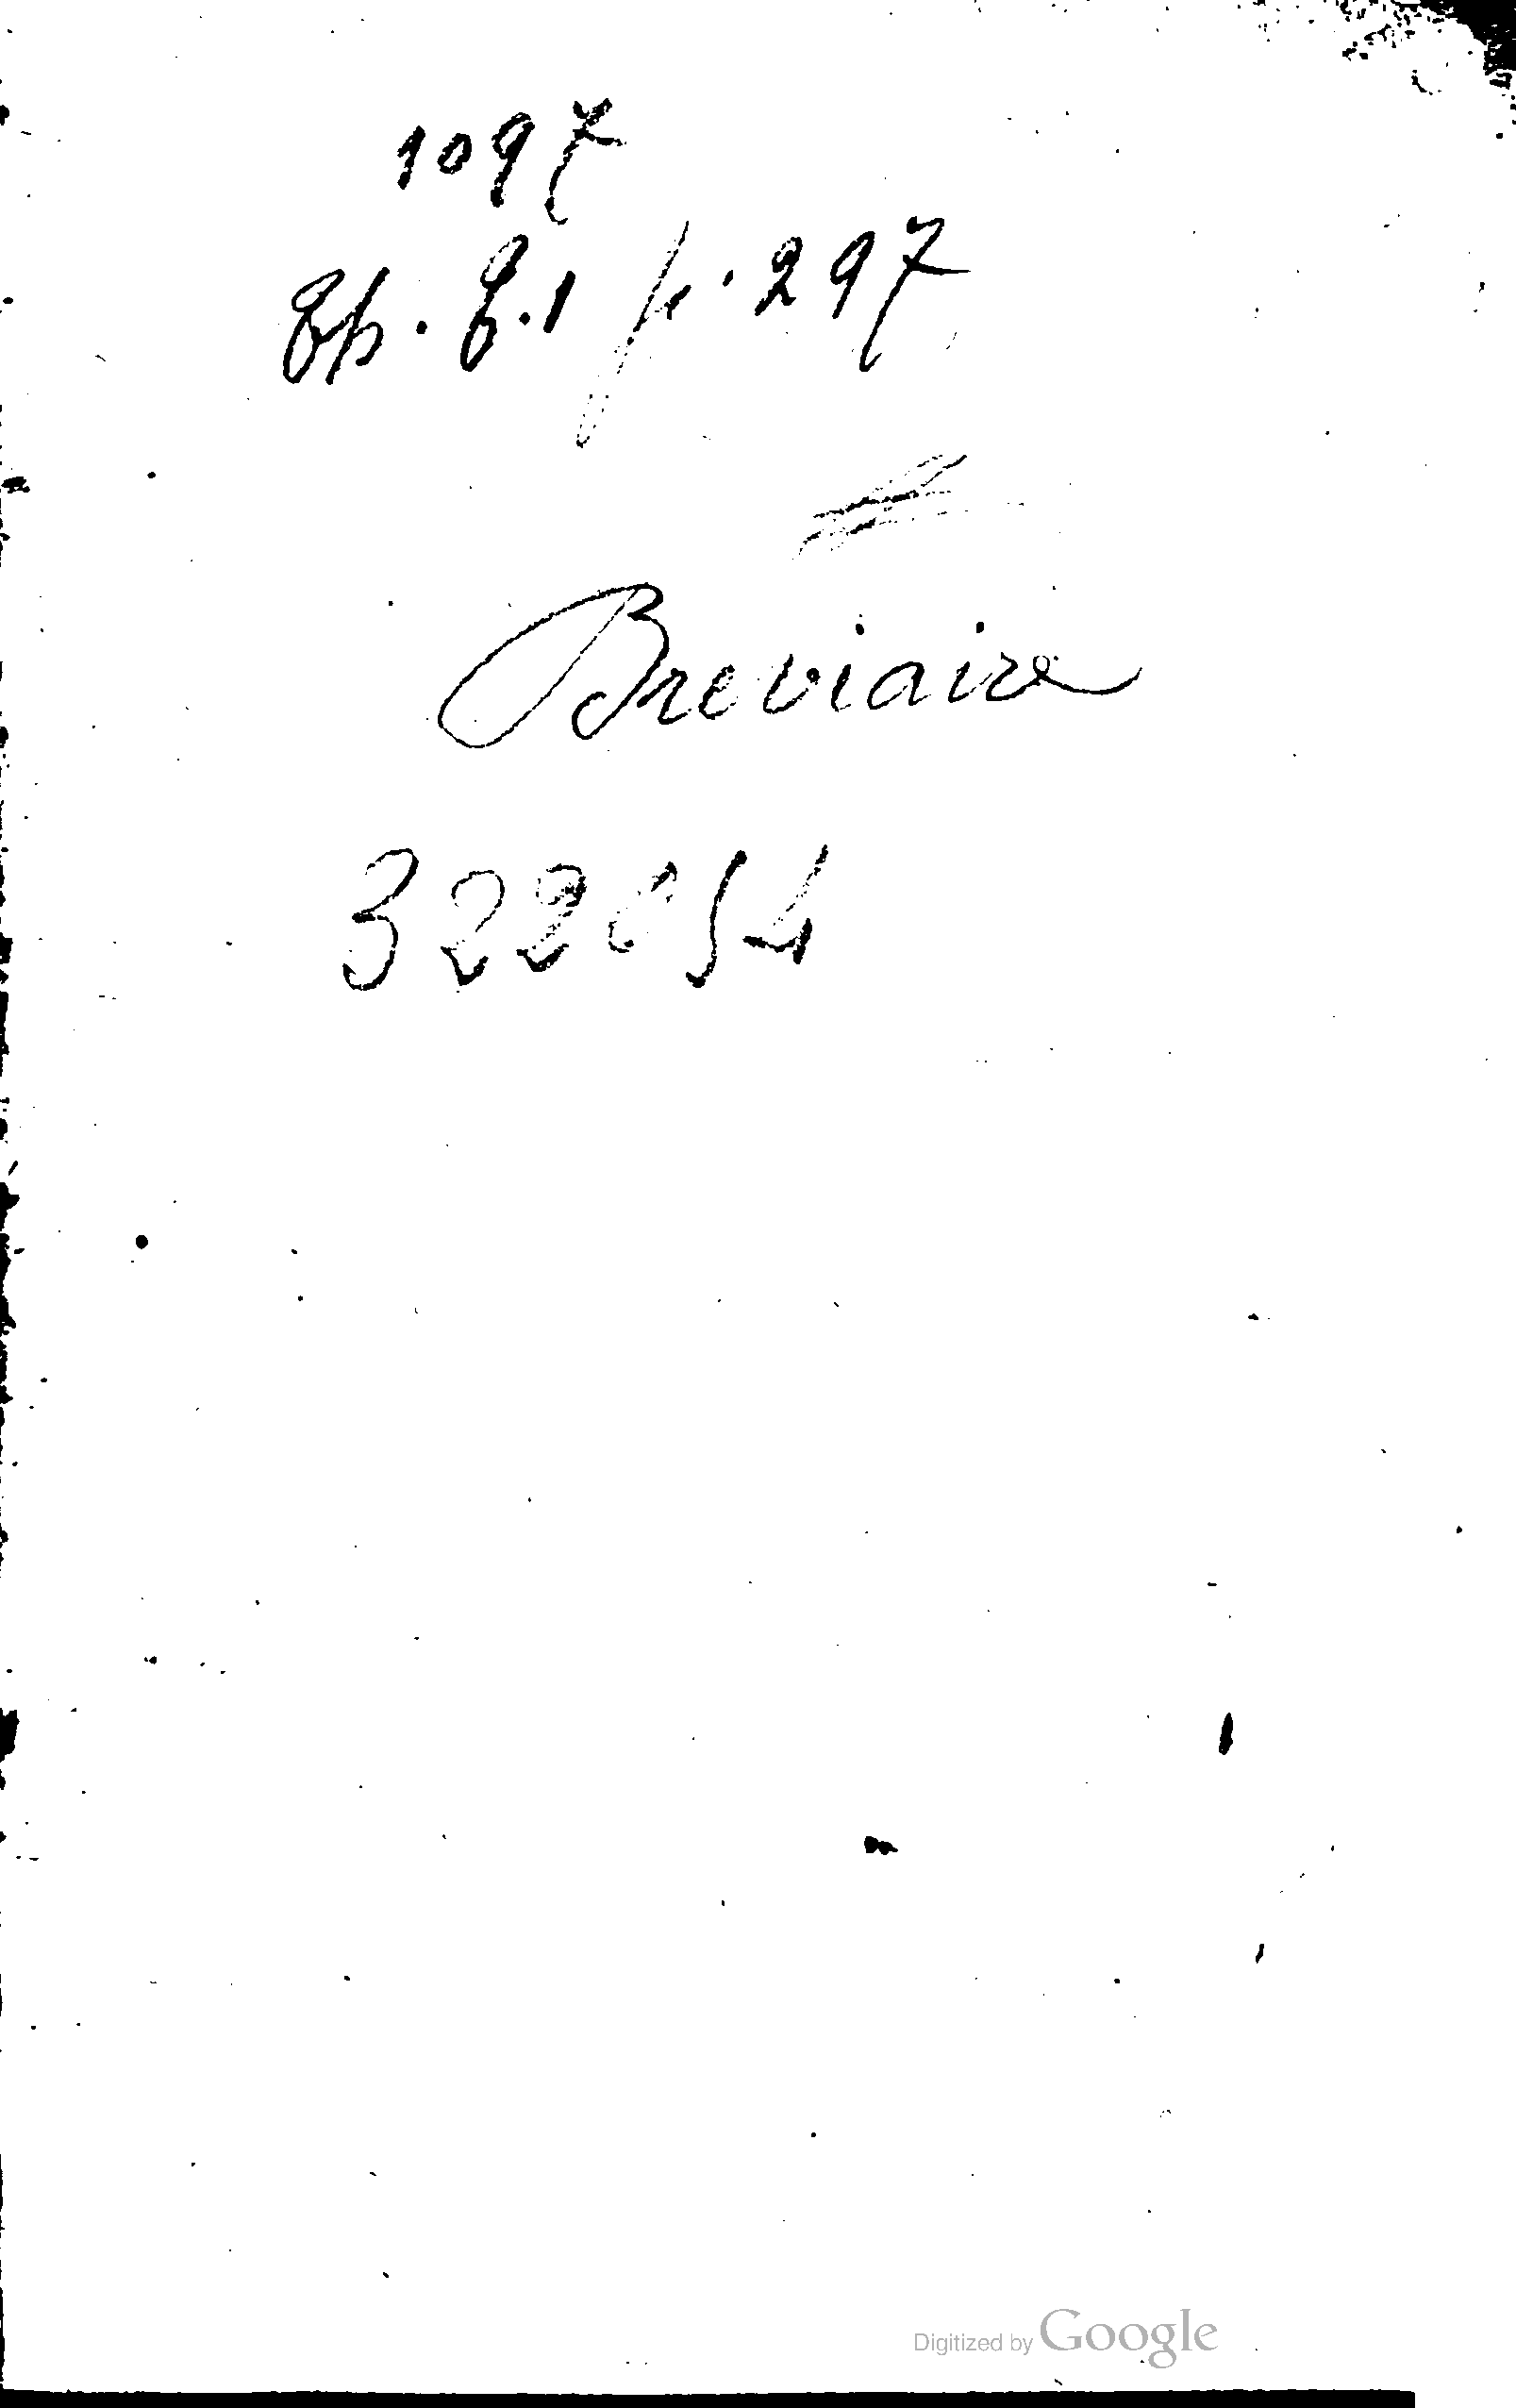 1097
Th. T. 1 p. 297
Breviaire
322054
Digitized by Google